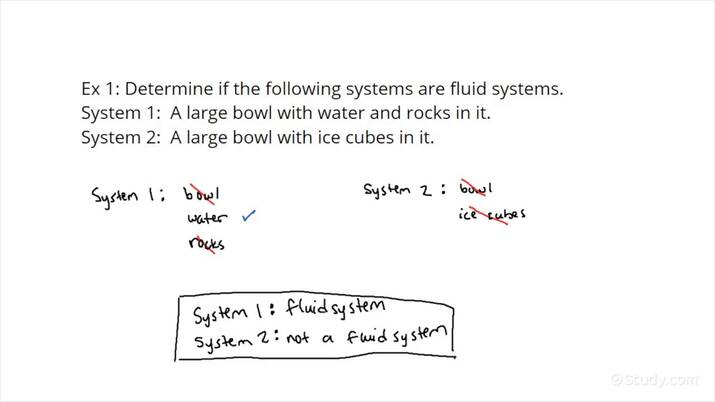 Ex 1: Determine if the following systems are fluid systems.
System 1: A large bowl with water and rocks in it.
System 2: A large bowl with ice cubes in it.
System 1: bowl
water ✓
rocks
System 2: bowl
ice cubes
System 1: fluid system
System 2: not a fluid system
©Study.com